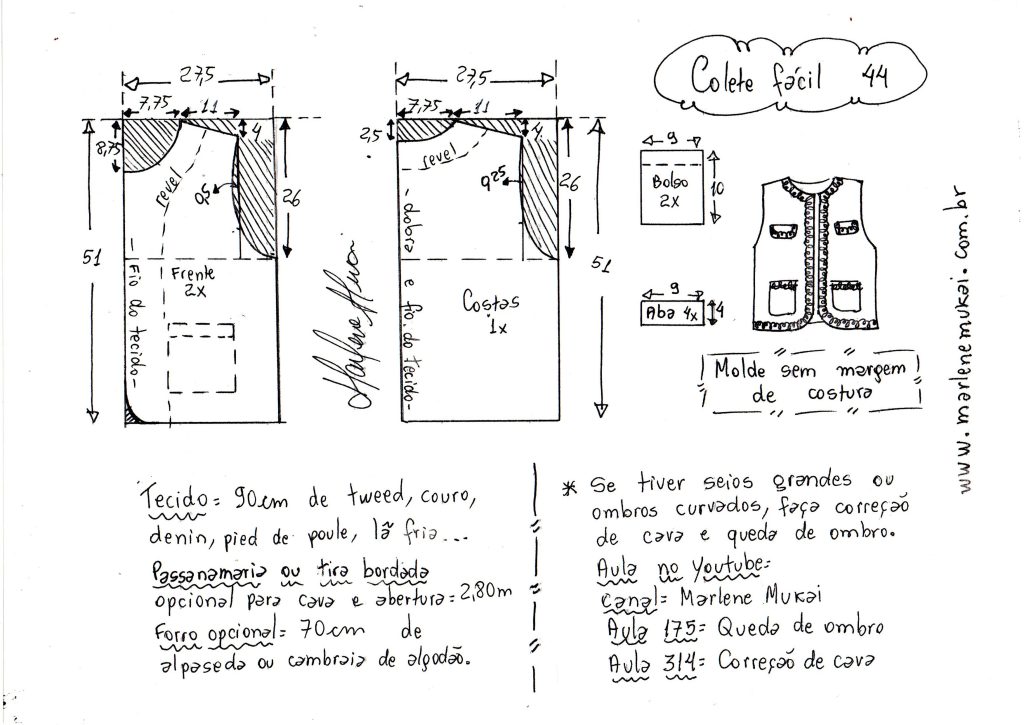 Colete fácil 44
27,5
7,75
11
8,75
4
revel
0,5
26
51
Frente
2x
-Fio do tecido-
27,5
7,75
11
2,5
4
revel
0,25
26
51
-dobra e fio do tecido-
Costas
1x
9
Bolso
2x
10
9
Aba 4x
4
Molde sem margem
de costura
www.marlenemukai.com.br
Tecido= 90cm de tweed, couro,
denin, pied de poule, lã fria...
Passanamaria ou tira bordada
opcional para cava e abertura=2,80m
Forro opcional= 70cm de
alpaseda ou cambraia de algodão.
* Se tiver seios grandes ou
ombros curvados, faça correção
de cava e queda de ombro.
Aula no Youtube=
Canal= Marlene Mukai
Aula 175= Queda de ombro
Aula 314= Correção de cava